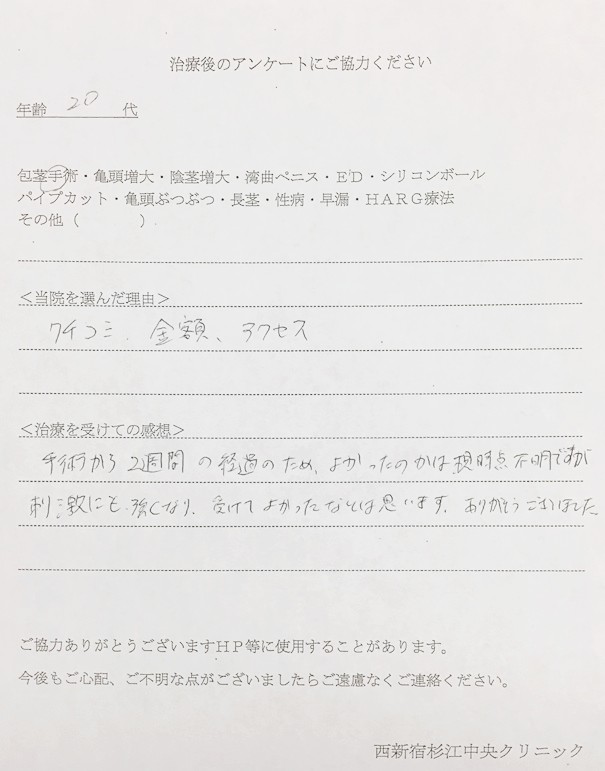 治療後のアンケートにご協力ください
年齢 20 代
包茎手術・亀頭増大・陰茎増大・湾曲ペニス・ED・シリコンボール
パイプカット・亀頭ぶつぶつ・長茎・性病・早漏・HARG療法
その他（　　　）
＜当院を選んだ理由＞
クチコミ、金額、アクセス
＜治療を受けての感想＞
手術から2週間の経過のため、よかったのかは現時点不明ですが
刺激にも強くなり、受けてよかったなとは思います。ありがとうございました
ご協力ありがとうございますHP等に使用することがあります。
今後もご心配、ご不明な点がございましたらご遠慮なくご連絡ください。
西新宿杉江中央クリニック